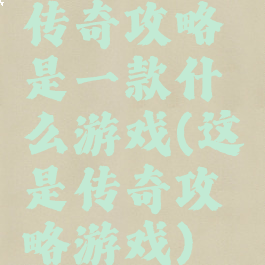 传奇攻略
是一款什
么游戏(这
是传奇攻
略游戏)